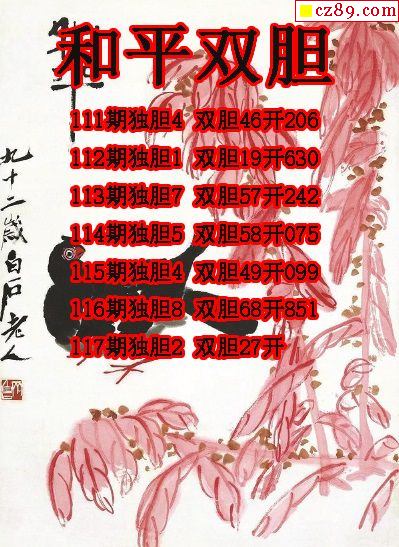 cz89.com
和平双胆
111期独胆4 双胆46开206
112期独胆1 双胆19开630
113期独胆7 双胆57开242
114期独胆5 双胆58开075
115期独胆4 双胆49开099
116期独胆8 双胆68开851
117期独胆2 双胆27开
九十二岁白石老人